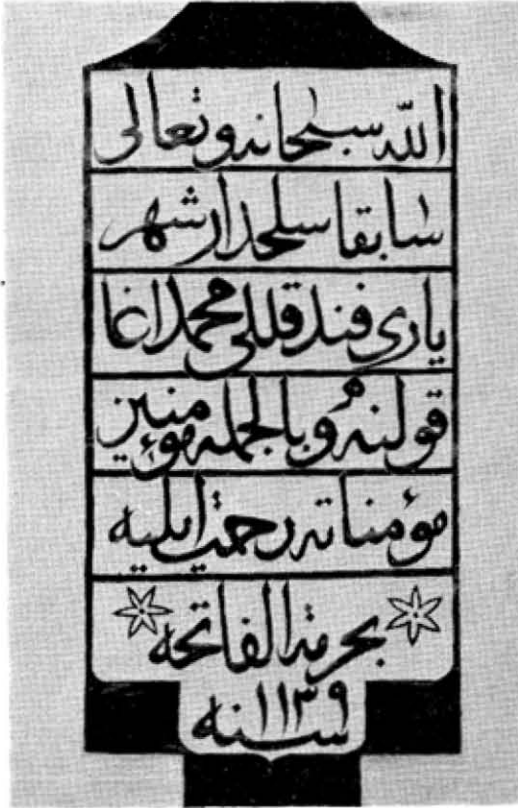 الله سبحانه وتعالى
سابقا سلحدار شهر
ياري فندقللي محمد اغا
قولنه و بالجمله مؤمنين
مؤمناته رحمت ايليه
بحرمة الفاتحه
سنه ١١٣٩